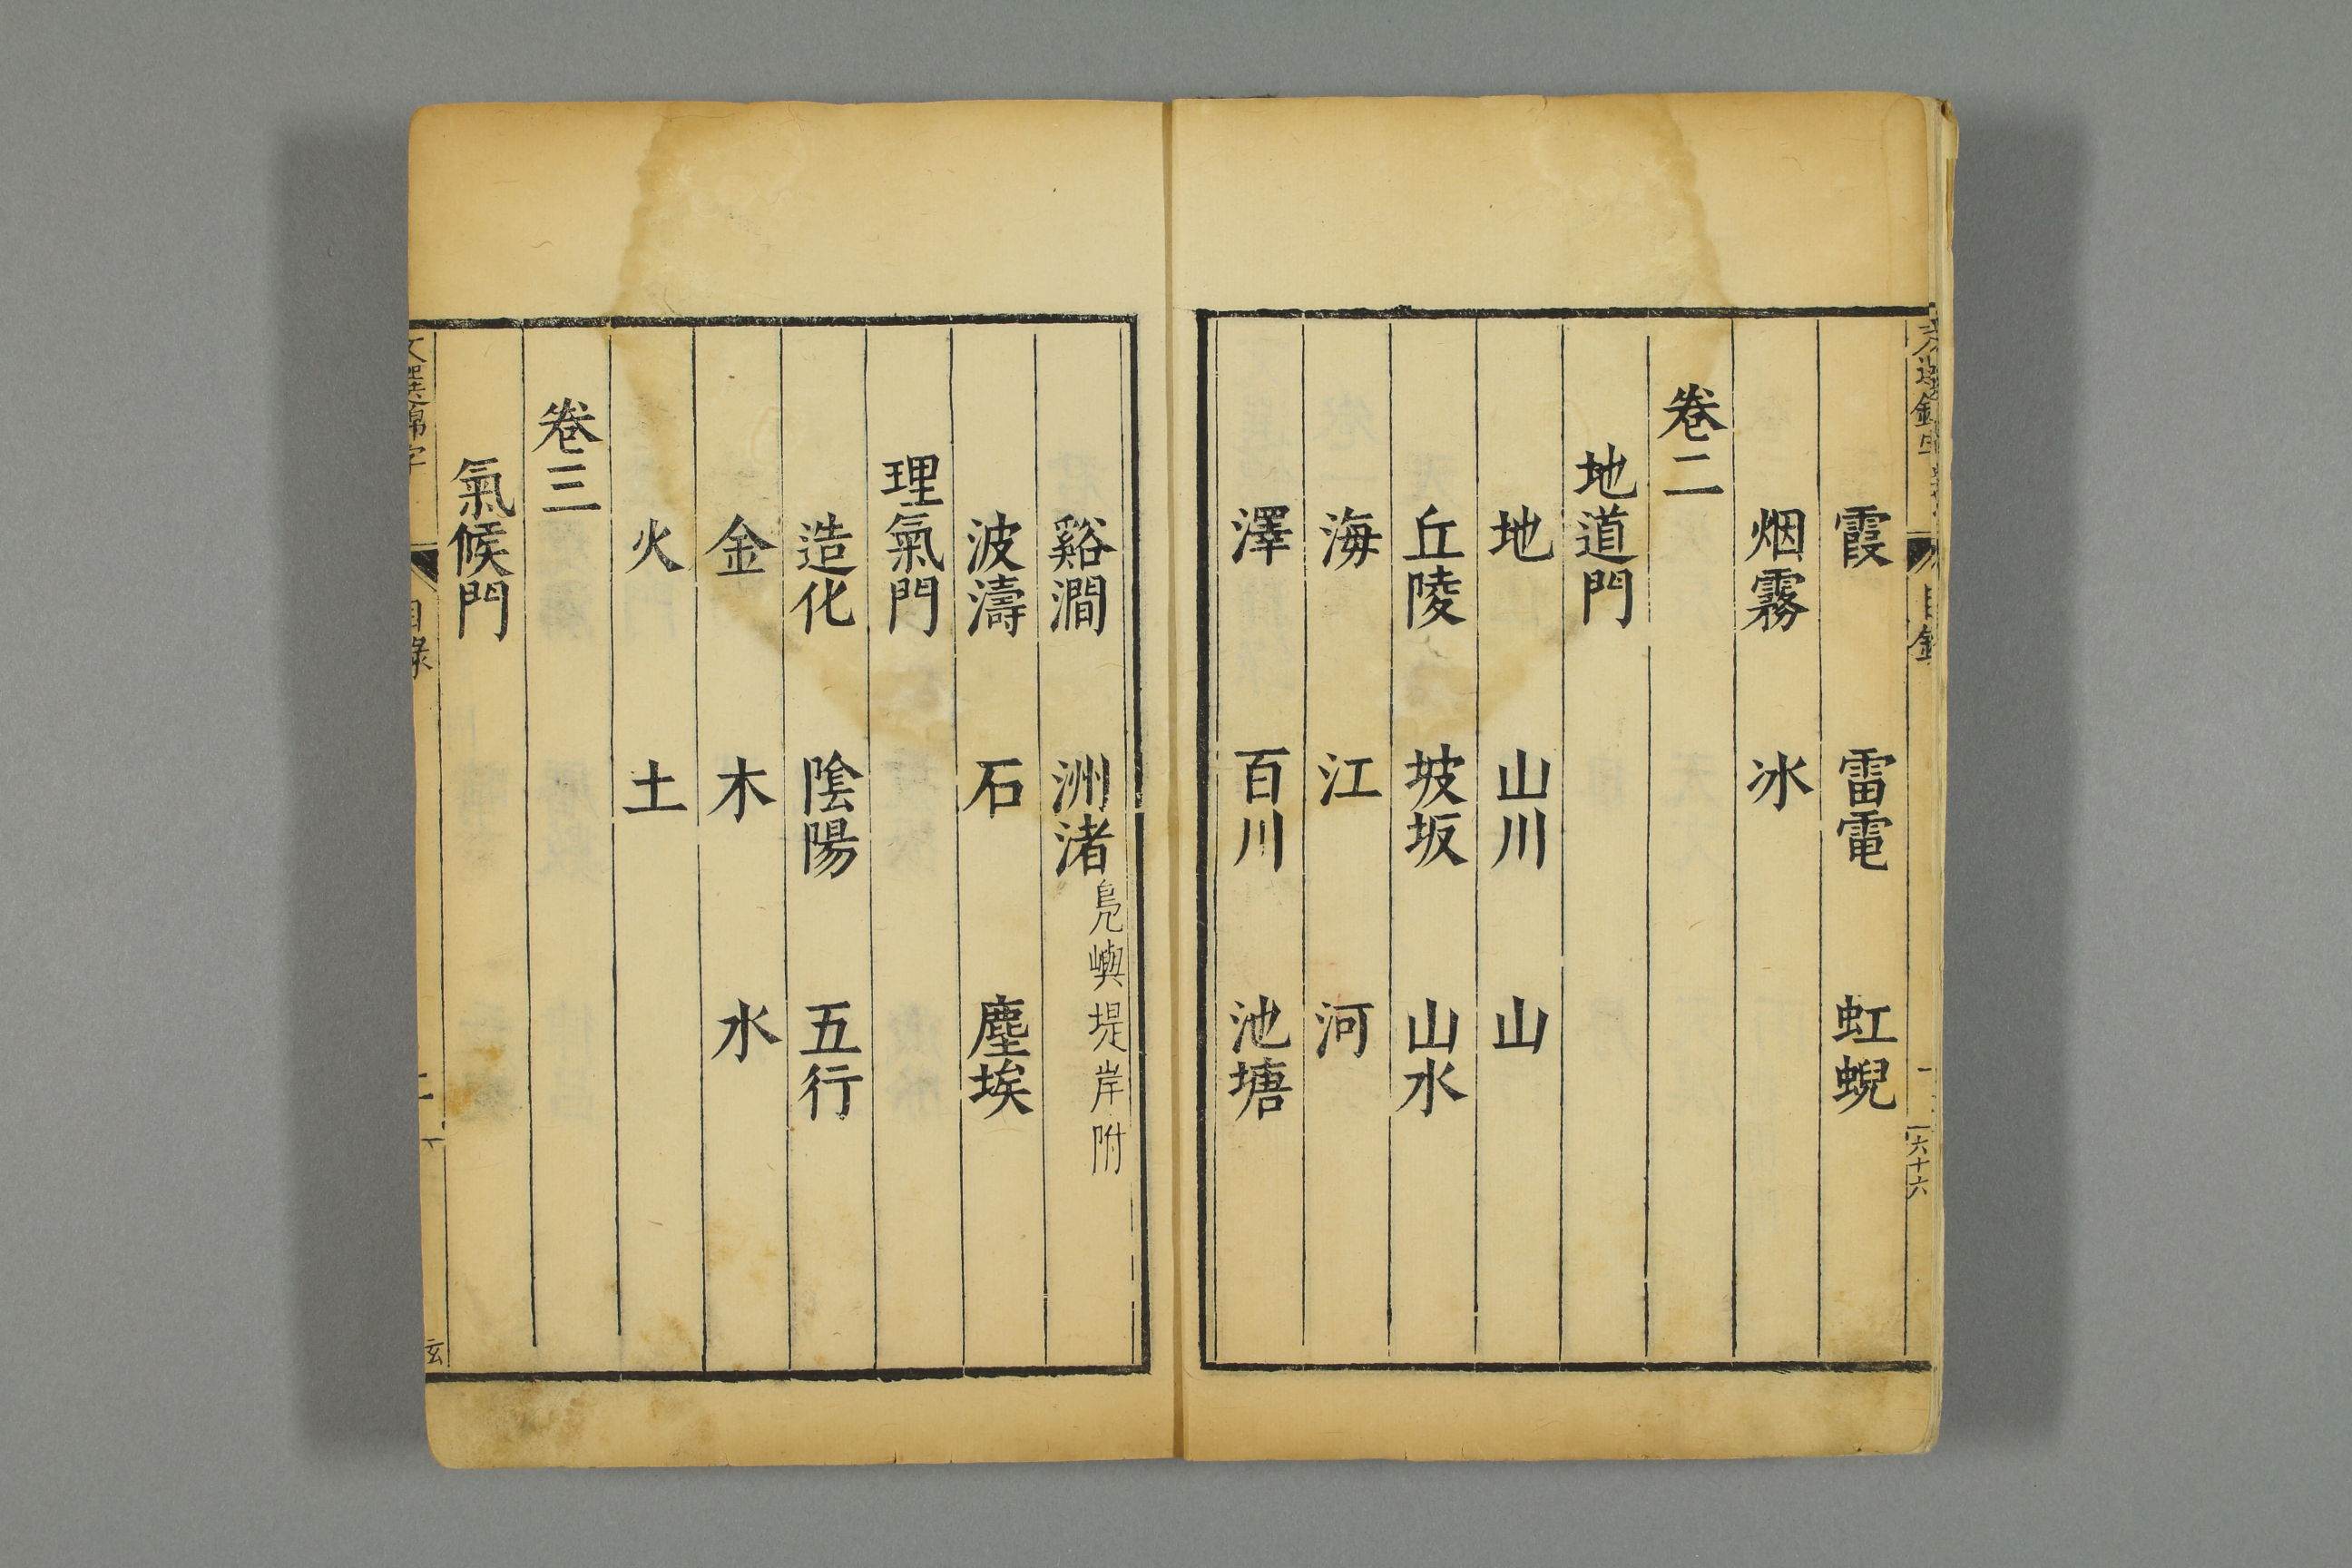 霞 雷電 虹蜺
烟霧 冰
卷二
地道門
地 山川 山
丘陵 坡坂 山水
海 江 河
澤 百川 池塘
谿澗 洲渚 島嶼堤岸附
波濤 石 塵埃
理氣門
造化 陰陽 五行
金 木 水
火 土
卷三
氣候門
文選錦字
目錄
六十六
玄